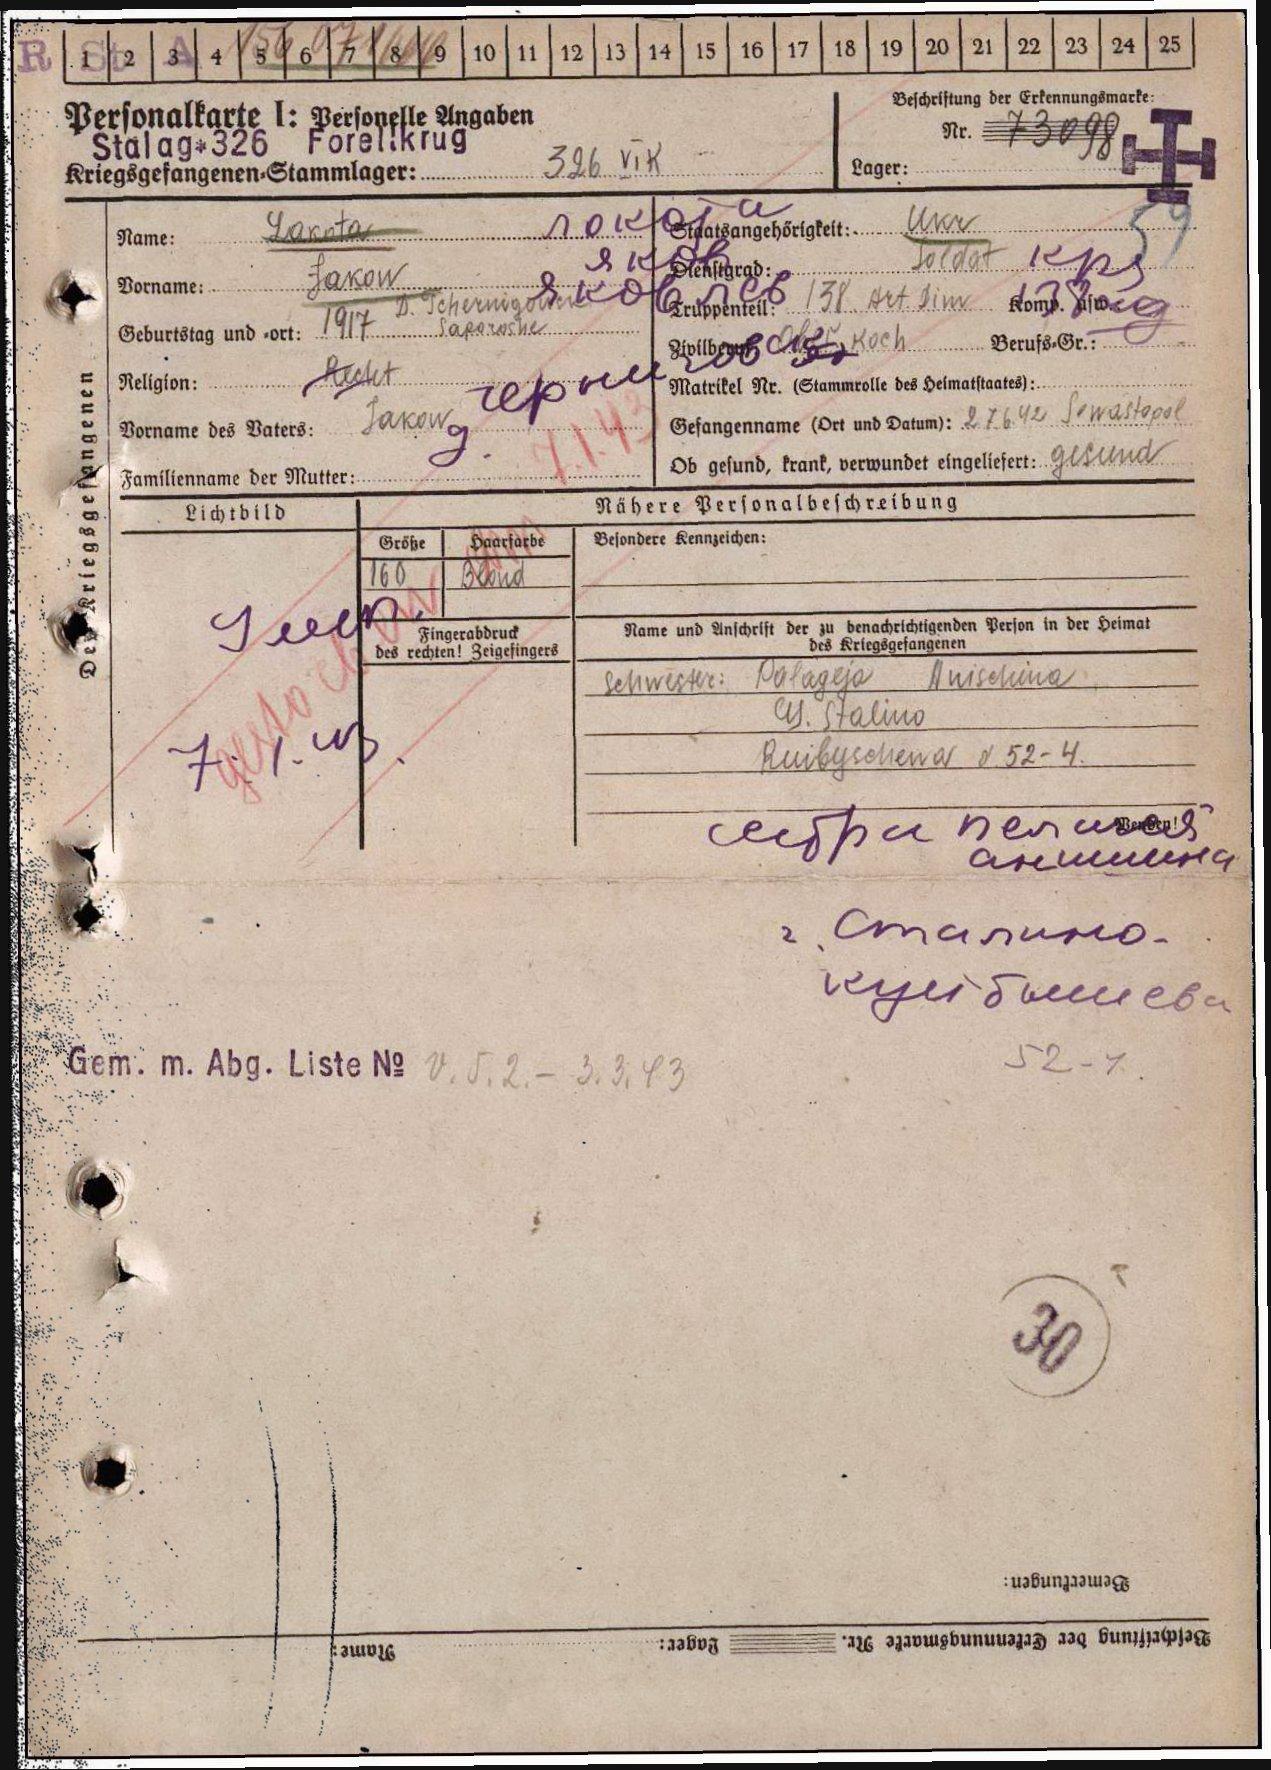 R St A
1 2 3 4 5 6 7 8 9 10 11 12 13 14 15 16 17 18 19 20 21 22 23 24 25
Personalkarte I: Personelle Angaben
Stalag*326 Forellkrug
Kriegsgefangenen-Stammlager: 326 VI K
Beschriftung der Erkennungsmarke:
Nr. 73098
Lager:
59
Des Kriegsgefangenen
Name: Lakota локота
Vorname: Jakow яков
яковлев
Geburtstag und -ort: 1917 D. Tschernigowka
Saporoshe
Religion:
д. черниговка
Vorname des Vaters: Jakow
Familienname der Mutter:
Staatsangehörigkeit: Ukr
Dienstgrad: Soldat кр
Truppenteil: 138. Art. Komp. usw.:
Zivilberuf: Koch Berufs-Gr.:
Matrikel Nr. (Stammrolle des Heimatstaates):
Gefangenname (Ort und Datum): 27.6.42 Sewastopol
Ob gesund, krank, verwundet eingeliefert: gesund
Lichtbild
Nähere Personalbeschreibung
Größe Haarfarbe Besondere Kennzeichen:
160 Blond
Fingerabdruck
des rechten! Zeigefingers
gestorben am 7.1.43
7.1.43.
Name und Anschrift der zu benachrichtigenden Person in der Heimat
des Kriegsgefangenen
Schwester: Palageja Anischina
G. Stalino
Kuibyschewa d 52-4.
Wenden!
пелагея
анишина
г. Сталино-
куйбышева
52-4.
Gem. m. Abg. Liste № V.5.2.- 3.3.43
30
Bemerkungen:
Beschriftung der Erkennungsmarke Nr. Lager: Name: